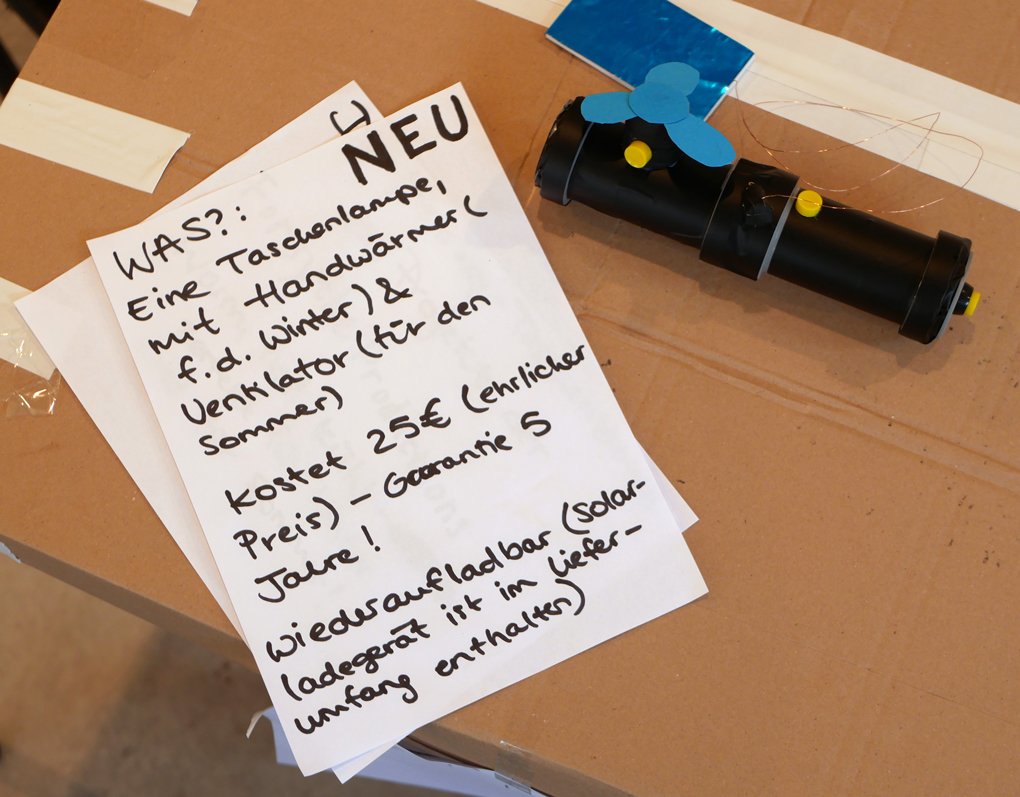 NEU
WAS?:
Eine Taschenlampe,
mit Handwärmer (
f.d. Winter) &
Ventilator (für den
Sommer)
kostet 25€ (ehrlicher
Preis) - Garantie 5
Jahre!
wiederaufladbar (Solar-
ladegerät ist im Liefer-
umfang enthalten)